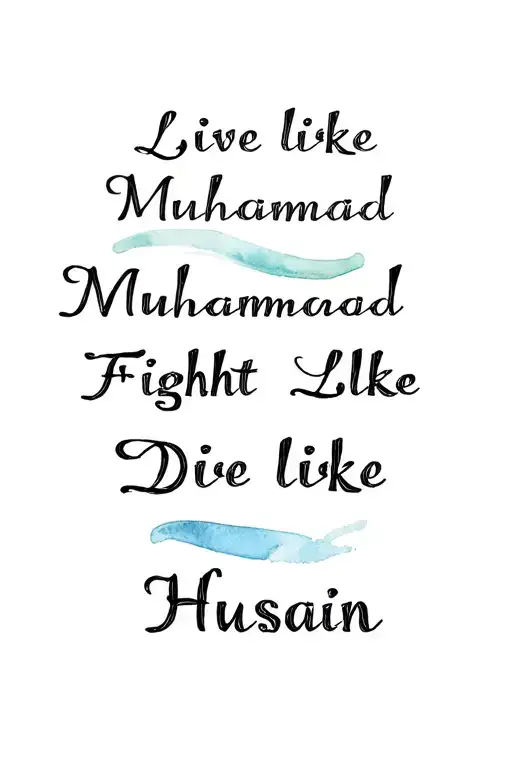 Live like
Muhammad
Muhammaad
Fighht Llke
Die like
Husain